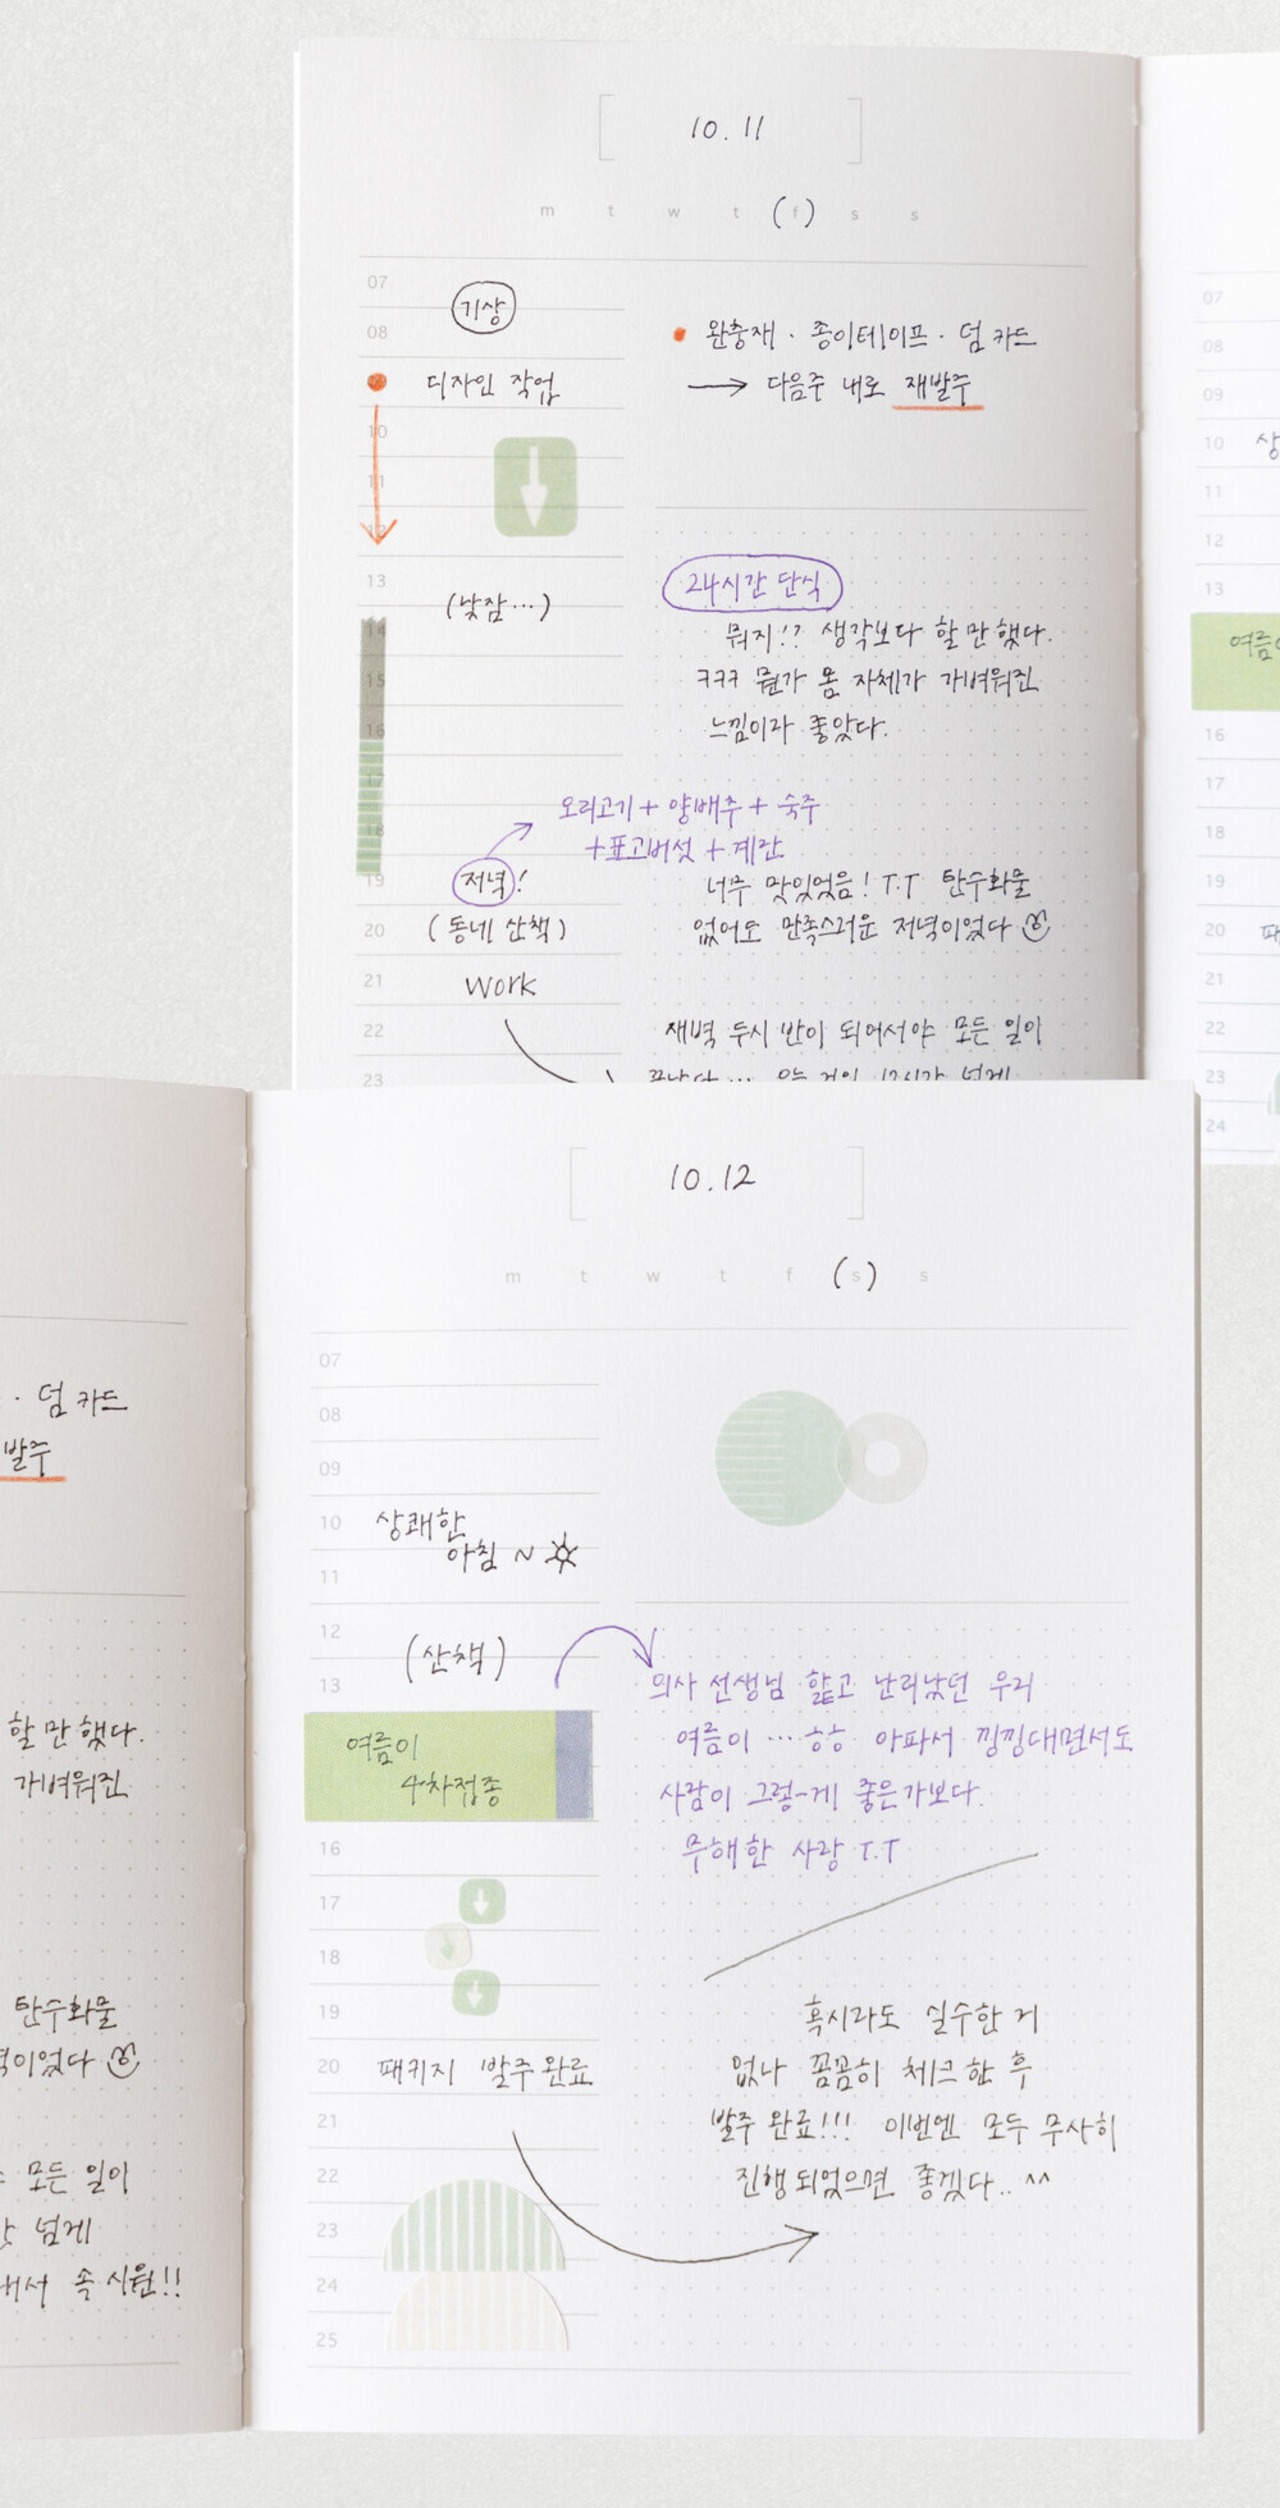 10.11
m t w t (f) s s
07
기상
08
디자인 작업
10
11
12
13
(낮잠…)
14
15
16
17
18
19
저녁!
20
(동네 산책)
21
work
22
23
• 완충재 · 종이테이프 · 덤 카드
→ 다음주 내로 재발주
24시간 단식
뭐지!? 생각보다 할만했다.
ㅋㅋㅋ 뭔가 몸 자체가 가벼워진
느낌이라 좋았다.
오리고기 + 양배추 + 숙주
+ 표고버섯 + 계란
너무 맛있었음! T.T 탄수화물
없어도 만족스러운 저녁이었다
새벽 두시 반이 되어서야 모든 일이
끝났다… 오늘 거의 12시간 넘게
07
08
09
10 상
11
12
13
여름이
16
17
18
19
20 패
21
22
23
24
· 덤 카드
발주
할만했다.
가벼워진
탄수화물
녁이었다
모든 일이
넘게
내서 속 시원!!
10.12
m t w t f (s) s
07
08
09
10 상쾌한
아침 ~
11
12
(산책)
13
여름이
4차접종
16
17
18
19
20 패키지 발주 완료
21
22
23
24
25
의사 선생님 핥고 난리났던 우리
여름이 … ㅎㅎ 아파서 낑낑대면서도
사람이 그렇-게 좋은가보다.
무해한 사랑 T.T
혹시라도 실수한 거
없나 꼼꼼히 체크한 후
발주 완료!!! 이번엔 모두 무사히
진행되었으면 좋겠다.. ^^